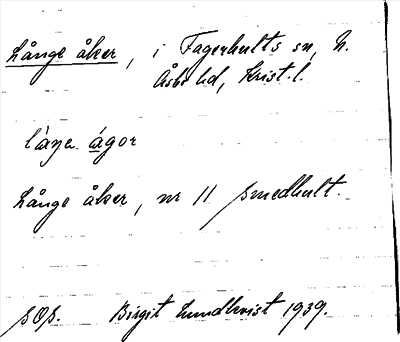 Långe åker, i Fagerhults sn, N.
Åsbo hd, Krist. l.
långe åker, nr 11 Smedhult.
SOS. Birgit Lundkvist 1939.